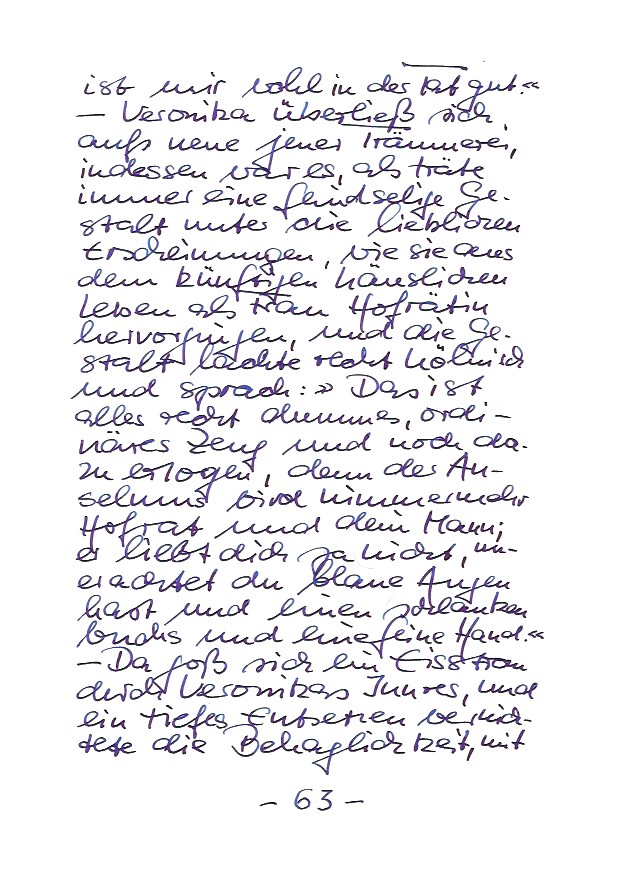 ist mir wohl in der Tat gut.“
— Veronika überließ sich
aufs neue jener Träumerei,
indessen war es, als träte
immer eine feindselige Ge-
stalt unter die lieblichen
Erscheinungen, wie sie aus
dem künftigen häuslichen
Leben als Frau Hofrätin
hervorgingen, und die Ge-
stalt lachte recht höhnisch
und sprach: » Das ist
alles recht dummes, ordi-
näres Zeug und noch da-
zu erlogen, denn der An-
selmus wird nimmermehr
Hofrat und dein Mann;
er liebt dich ja nicht, un-
erachtet du blaue Augen
hast und einen schlanken
Wuchs und eine feine Hand.“
— Da goß sich ein Eisstrom
durch Veronikas Innres, und
ein tiefes Entsetzen vernich-
tete die Behaglichkeit, mit
– 63 –